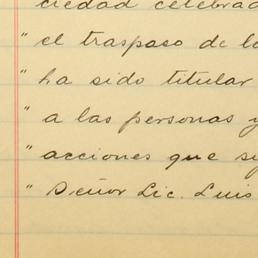 ciedad celebrad
" el traspaso de lo
" ha sido titular
" a las personas y
" acciones que s
" Señor Lic. Luis